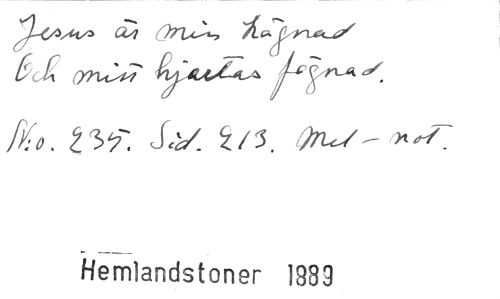 Jesus är min hägnad
Och mitt hjertas fägnad.
N:o. 235. Sid. 213. Mel-not.
Hemlandstoner 1889